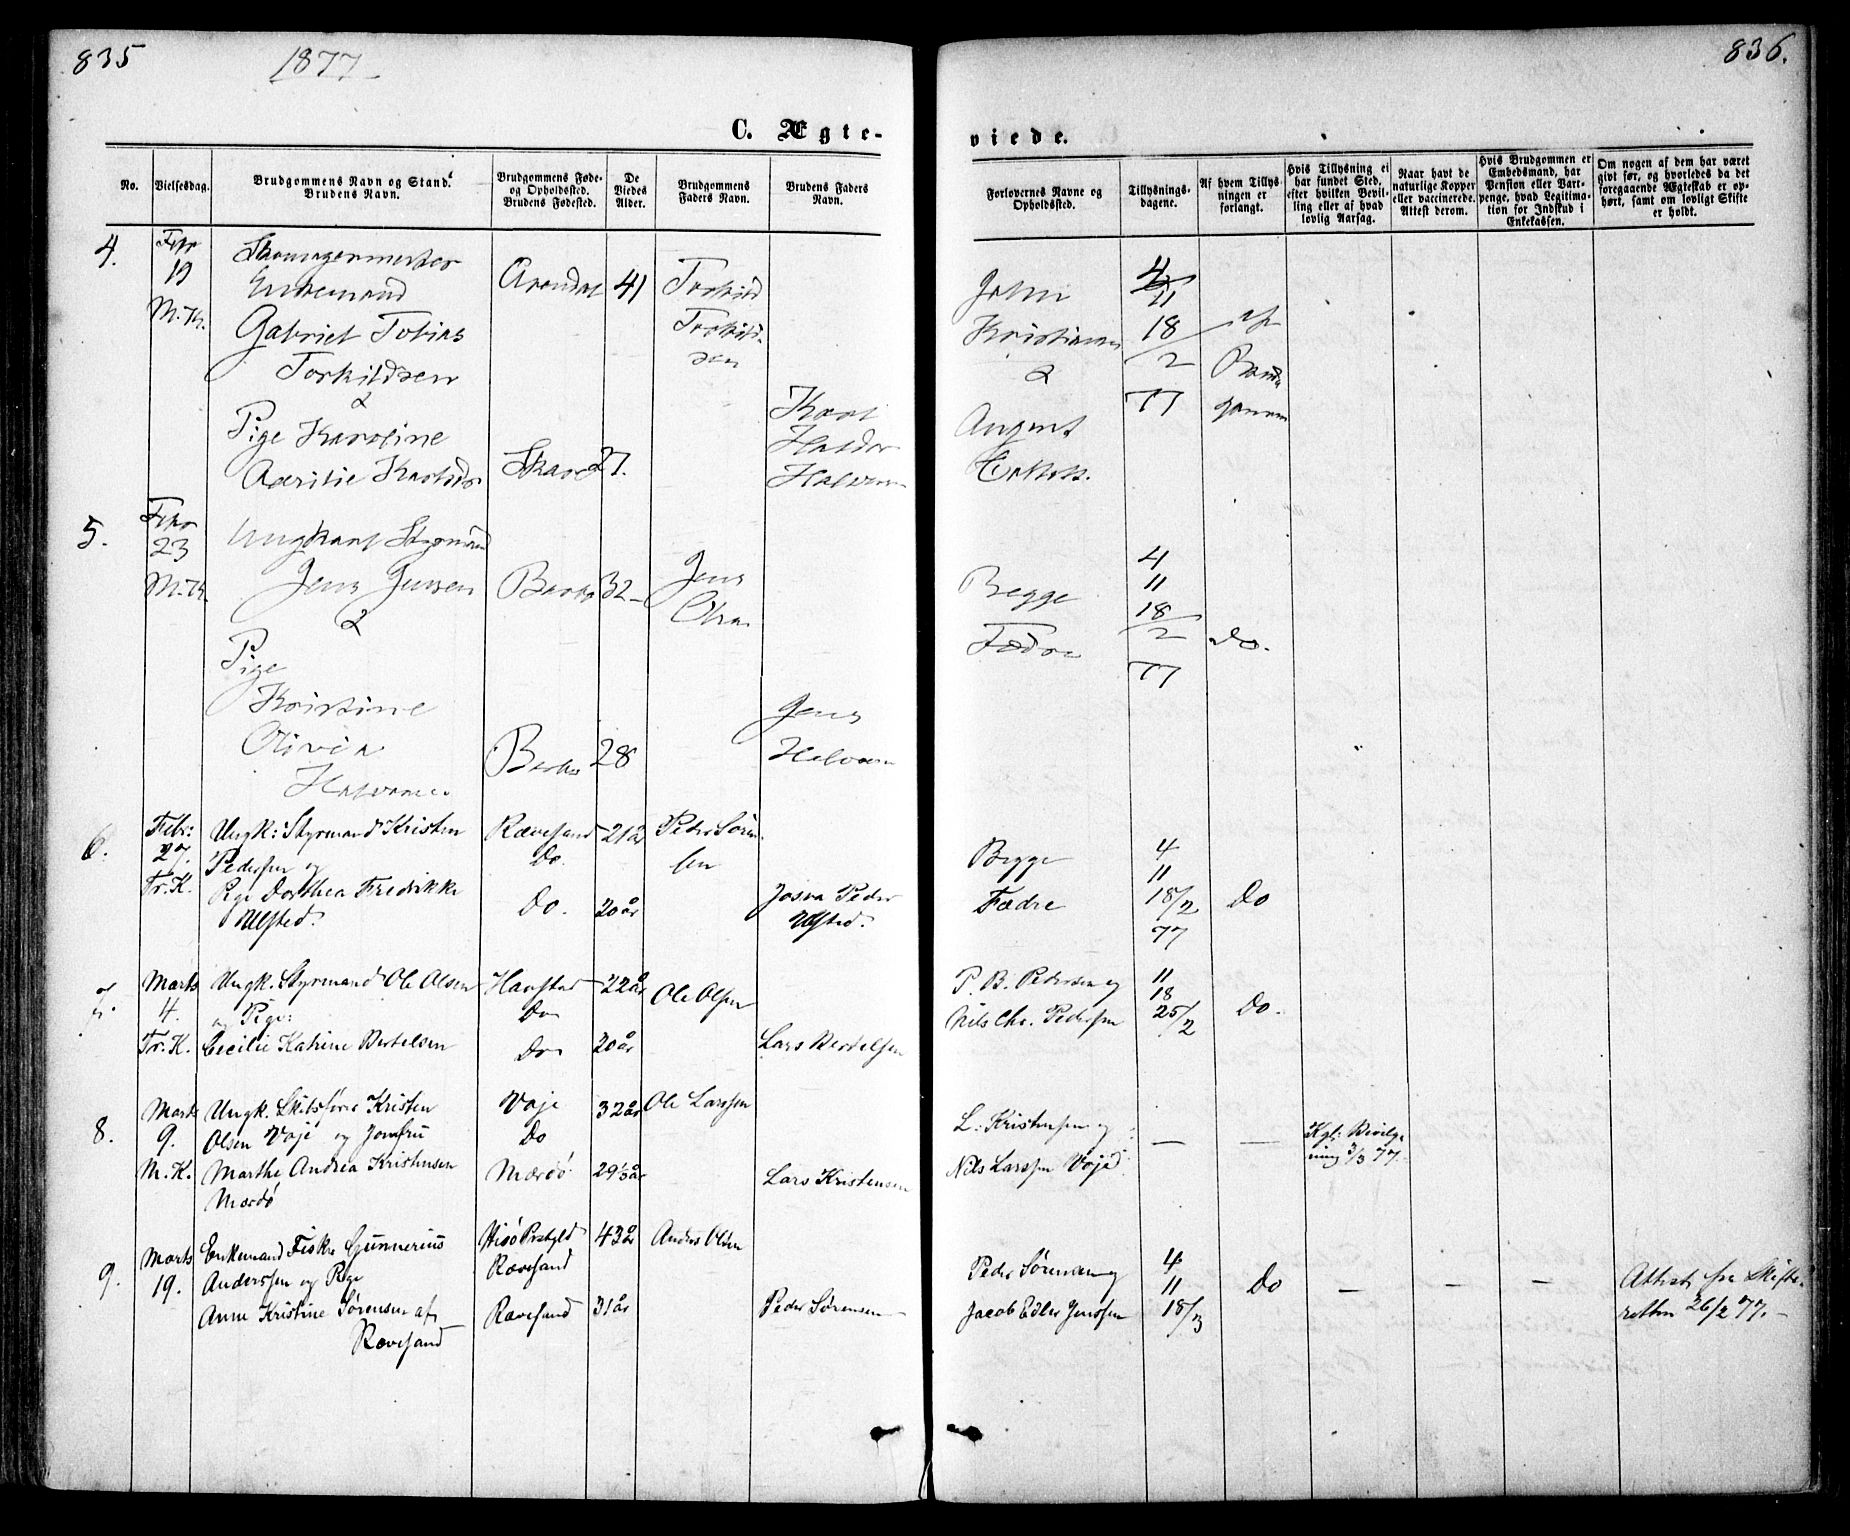 835
1877
C. Ægte-
No.
Vielsesdag.
Brudgommens Navn og Stand.
Brudens Navn.
Brudgommens Føde-
og Opholdssted.
Brudens Fødested.
De
Viedes
Alder.
Brudgommens
Faders Navn.
Brudens Faders
Navn.
4.
Febr
19
M.K.
Enkemand
Gabriel Tobias
Torkildsen
&
Pige Karoline
Arendal
41
27.
Torkild
Torkild-
sen
Halvor
5.
Febr
23
M.K.
Ungkarl Styrmand
Jens Jensen
&
Pige
Kristine
Olivia
32
28
Jens
Jens
Halvorsen
6.
Febr:
27.
Tr. K.
Ungk: Styrmand Kristen
Pedersen og
Pige Dorthea Fredrikke
Ulfsted.
Rævesand
Do.
Do.
21 år
20 år
Peder Søren-
sen
Josva Peder
Ulfsted.
7.
Marts
4.
Tr. K.
Ungk. Styrmand Ole Olsen
og Pige:
Cecilie Katrine Bertelsen
Havstad
Do
Do
22 år
20 år
Ole Olsen
Lars Bertelsen
8.
Marts
9.
M. K.
Ungk. Skibsfører Kristen
Olsen Voje og Jomfru
Marthe Andrea Kristensen
Mærdö
Voje
Do
Mærdö
32 år
29 1/3 år
Ole Larssen
Lars Kristensen
9.
Marts
19.
Enkemand Fisker Gunnerius
Anderssen og Pige
Anne Kristine Sørensen af
Rævesand
Hisö Prstgld
Rævesand
Rævesand
43 år
31 år
Anders Olsen
Peder Sørensen
836.
viede.
Forlovernes Navne og
Opholdssted.
Tillysnings-
dagene.
Af hvem Tillys-
ningen er
forlangt.
Hvis Tillysning ei
har fundet Sted,
efter hvilken Bevil-
ling eller af hvad
lovlig Aarsag.
Naar havt de
naturlige Kopper
eller vaccinerede.
Attest derom.
Hvis Brudgommen er
Embedsmand, har
Pension eller Vart-
penge, hvad Legitima-
tion for Indskud i
Enkekassen.
Om nogen af dem har været
givt før, og hvorledes da det
foregaaende Ægteskab er op-
hørt, samt om lovligt Skifte
er holdt.
John
Kristiansen
&
August
4
11
18
/2
77
af
Brud-
gommen
Begge
Fædre
4
11
18
/2
77
Do.
Begge
Fædre
4
11
18/2
77
Do
P. B. Pedersen og
Nils Chr. Pedersen
11
18
25/2
Do.
L. Kristensen og
Nils Larssen Voje
—
—
Kgl: Bevilg-
ning 3/3 77.
Peder Sørensen og
Jacob Edler Jenssen
4
11
18/3
Do
—
—
—
Attest fra Skifte-
retten 26/2 77.